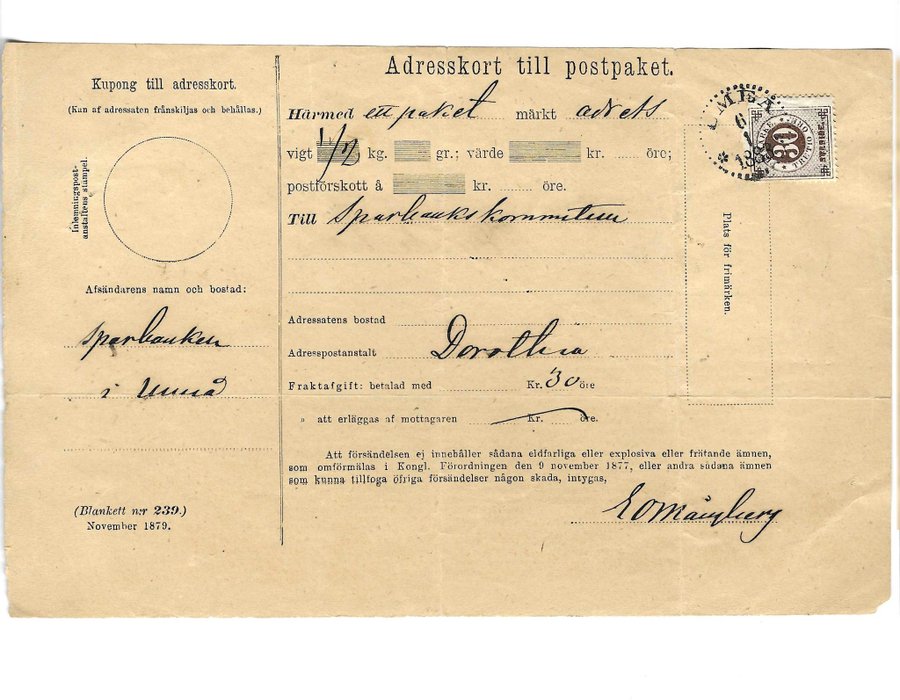 Kupong till adresskort.
(Kan af adressaten frånskiljas och behållas.)
Inlemningspost-
anstaltens stampel.
Afsändarens namn och bostad:
Sparbanken
i Umeå
(Blankett n:r 239.)
November 1879.
Adresskort till postpaket.
Härmed ett paket märkt adress
vigt 1/2 kg. gr.; värde kr. öre;
postförskott å kr. öre.
Till Sparbankskommitéen
Adressatens bostad
Adresspostanstalt Dorothea
Fraktafgift: betalad med Kr. 30 öre
» att erläggas af mottagaren Kr. öre.
Att försändelsen ej innehåller sådana eldfarliga eller explosiva eller frätande ämnen,
som omförmälas i Kongl. Förordningen den 9 november 1877, eller andra sådana ämnen
som kunna tillfoga öfriga försändelser någon skada, intygas,
UMEÅ
6
1
30
TRETIO
SVERIGE.
Plats för frimärken.